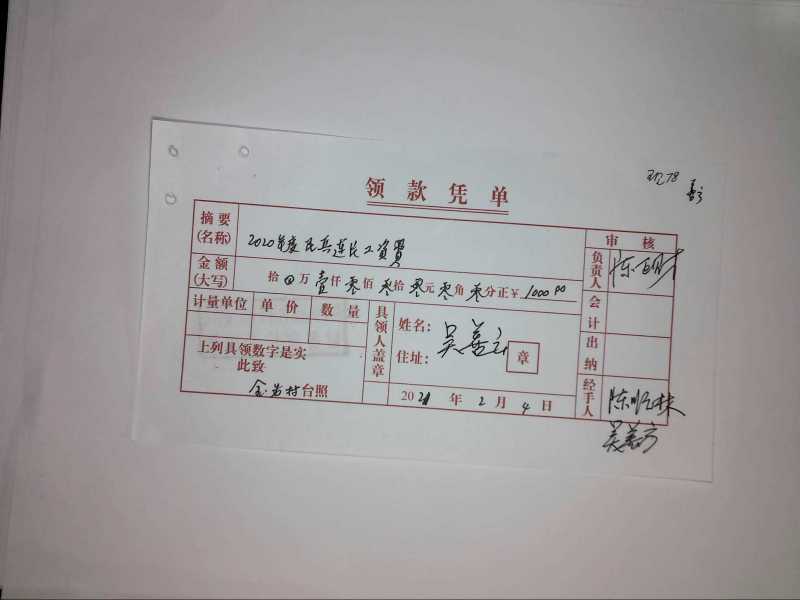 领款凭单
摘要(名称) 2020年度民兵连长工资费
审核
金额(大写) 拾 万壹仟零佰零拾零元零角零分正¥ 1000 00
负责人
计量单位 单价 数量
具领人盖章
姓名: 吴善
住址: 章
会计
上列具领数字是实
此致
台照
出纳
2021年2月4日
经手人 陈